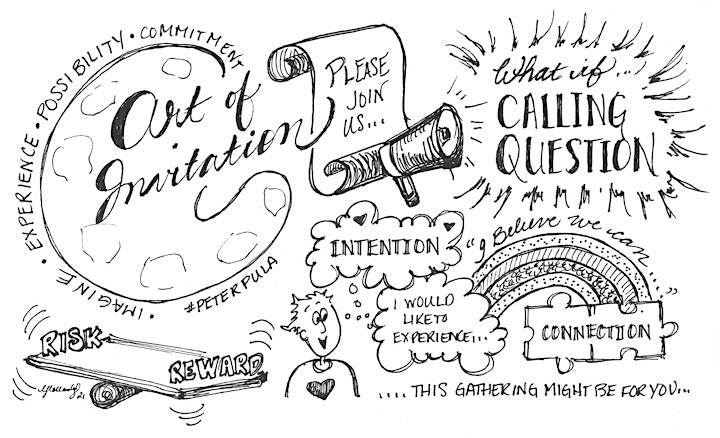 IMAGINE • EXPERIENCE • POSSIBILITY • COMMITMENT
Art of
Invitation
#PETERPULA
PLEASE
JOIN
US...
What if...
CALLING
QUESTION
INTENTION
"I Believe we can..."
I WOULD
LIKE TO
EXPERIENCE...
CONNECTION
RISK
REWARD
21
....THIS GATHERING MIGHT BE FOR YOU...